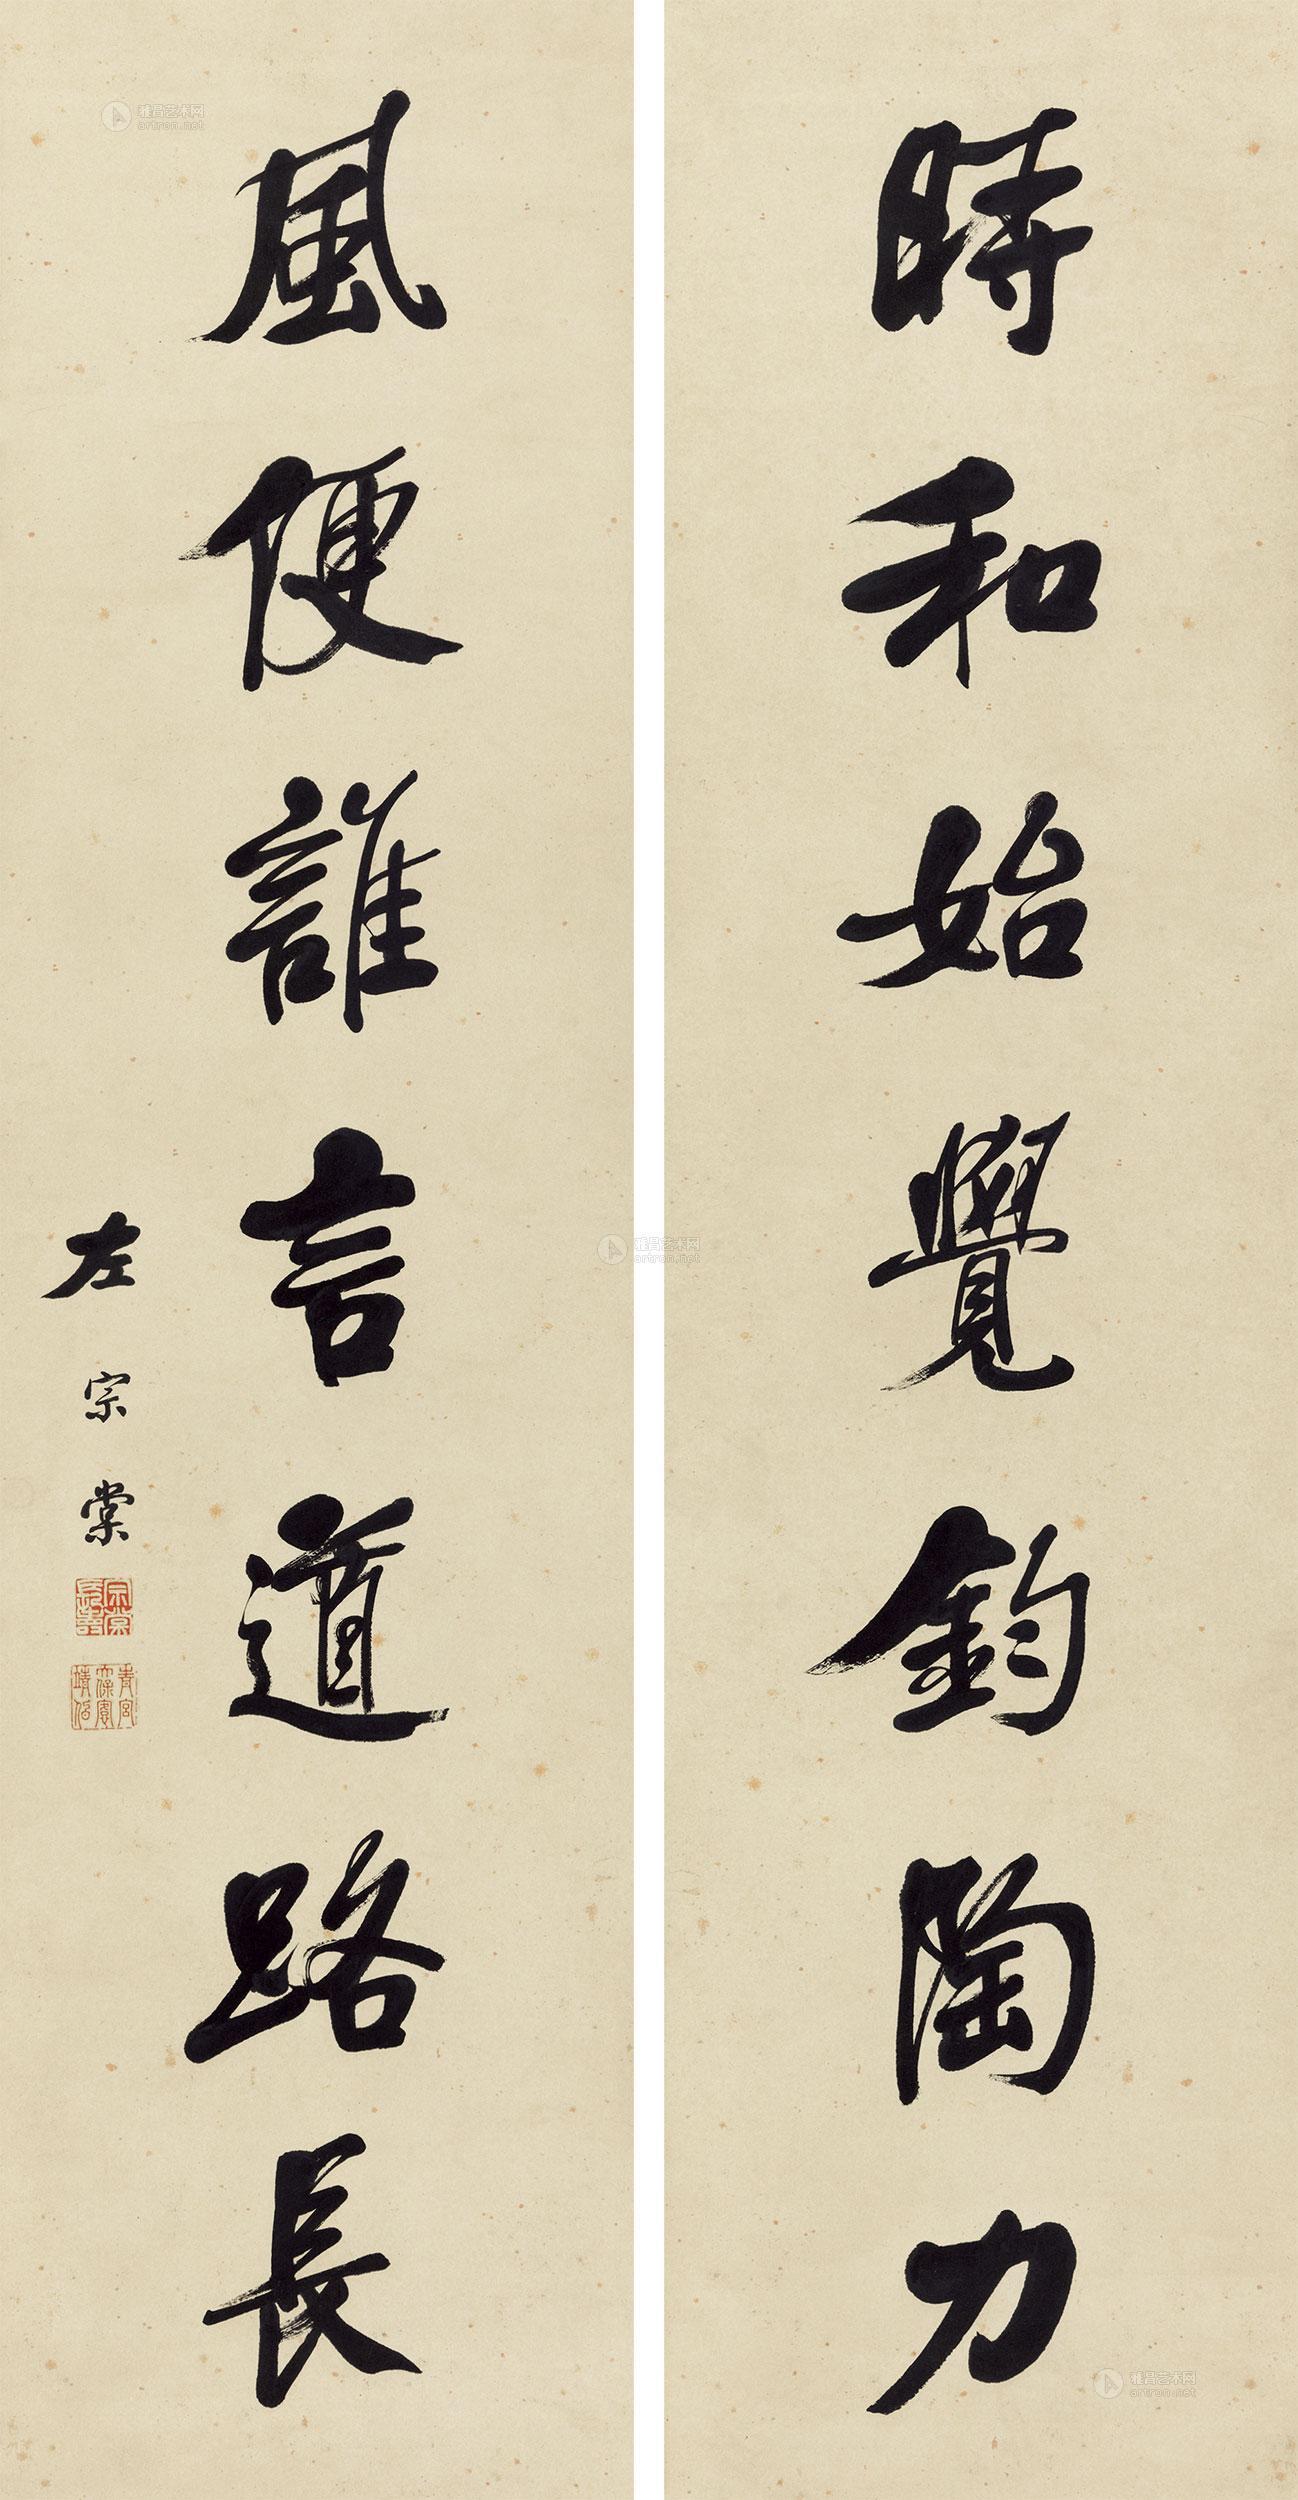 時和始覺鈞陶力
風便誰言道路長
左宗棠
宗棠長壽
青宮太保恪靖侯
雅昌艺术网
artron.net
雅昌艺术网
artron.net
雅昌艺术网
artron.net